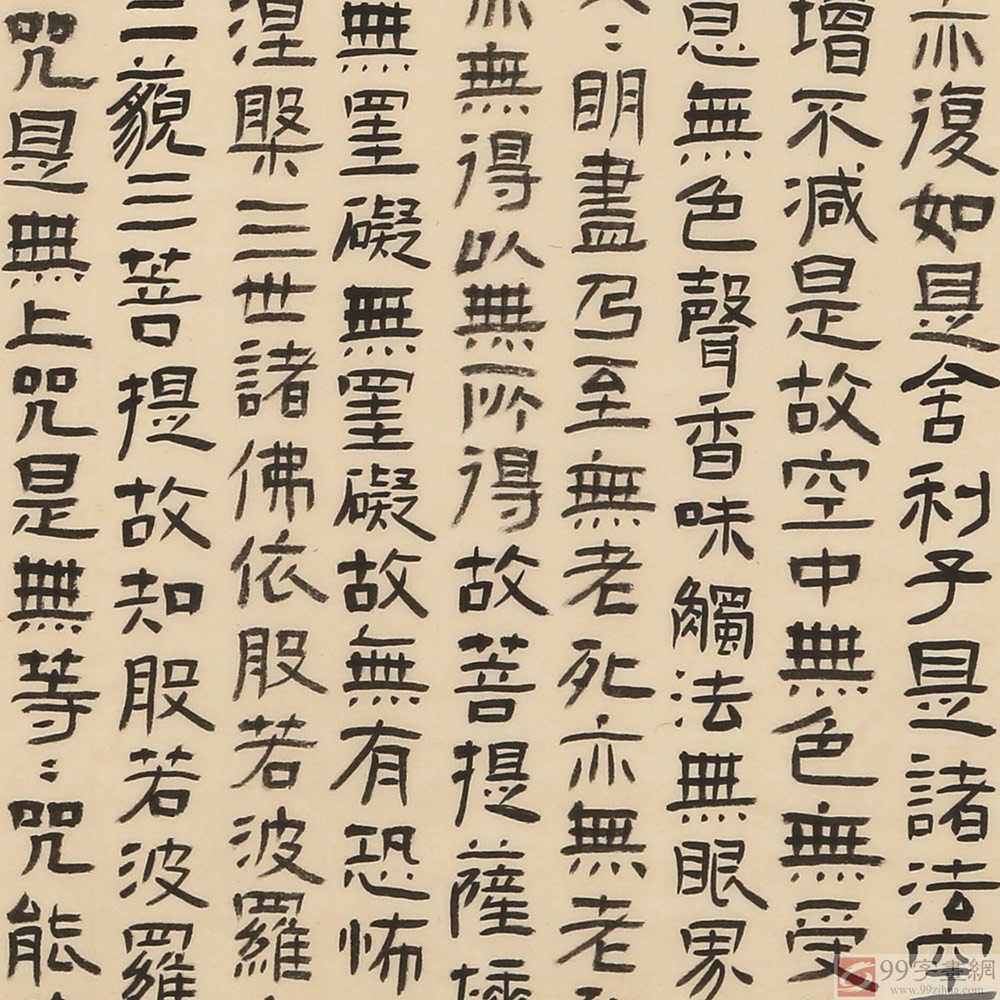 亦復如是舍利子是諸法空
增不減是故空中無色無受
息無色聲香味觸法無眼界
明盡乃至無老死亦無老
亦無得以無所得故菩提薩埵
無罣礙無罣礙故無有恐怖
涅槃三世諸佛依般若波羅
三藐三菩提故知般若波羅
咒是無上咒是無等〻咒能
99字畫網
www.99zihua.com